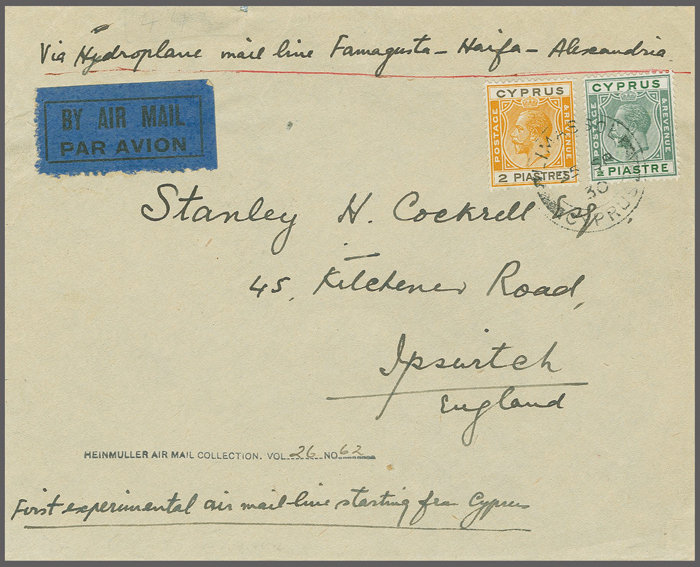 Via Hydroplane mail line Famagusta - Haifa - Alexandria
BY AIR MAIL
PAR AVION
CYPRUS
POSTAGE
& REVENUE
2 PIASTRES
CYPRUS
POSTAGE
& REVENUE
½ PIASTRE
30
CYPRUS
Stanley H. Cockrell Esq.
45, Kitchener Road,
Ipswitch
England
HEINMULLER AIR MAIL COLLECTION. VOL. 26 NO. 62
First experimental air mail-line starting from Cyprus